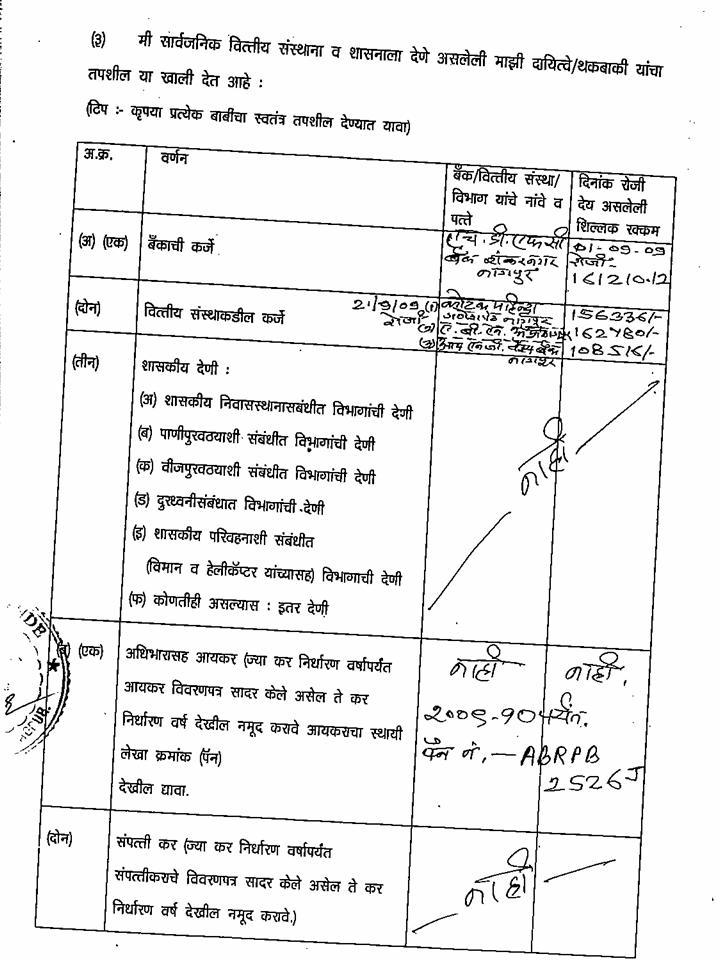 (३) मी सार्वजनिक वित्तीय संस्थाना व शासनाला देणे असलेली माझी दायित्वे/थकबाकी यांचा
तपशील या खाली देत आहे :
(टिप :- कृपया प्रत्येक बाबींचा स्वतंत्र तपशील देण्यात यावा)
अ.क्र. वर्णन
बँक/वित्तीय संस्था/
विभाग यांचे नांवे व
पत्ते
दिनांक रोजी
देय असलेली
शिल्लक रक्कम
(अ) (एक) बँकाची कर्जे
एच. डी. एफ सी
बँक शंकरनगर
नागपुर
01-09-09
रोजी-
161210.12
(दोन) वित्तीय संस्थाकडील कर्जे
21/9/09 रोजी
(1) कोटक महिन्द्रा
नागपुर
156336/-
(2) ए. बी. एन.
162780/-
(3) आय एन जी. वैश्य बँक
नागपुर
108516/-
(तीन) शासकीय देणी :
(अ) शासकीय निवासस्थानासबंधीत विभागांची देणी
(ब) पाणीपुरवठयाशी संबंधीत विभागांची देणी
(क) वीजपुरवठयाशी संबंधीत विभागांची देणी
(ड) दुरध्वनीसंबंधात विभागांची देणी
(इ) शासकीय परिवहनाशी संबंधीत
(विमान व हेलीकॅप्टर यांच्यासह) विभागाची देणी
(फ) कोणतीही असल्यास : इतर देणी
नाही
(ब) (एक) अधिभारासह आयकर (ज्या कर निर्धारण वर्षापर्यंत
आयकर विवरणपत्र सादर केले असेल ते कर
निर्धारण वर्ष देखील नमूद करावे आयकराचा स्थायी
लेखा क्रमांक (पॅन)
देखील द्यावा.
नाही
नाही.
२००९-१० पर्यंत.
पॅन नं. — ABRPB
2526J
(दोन) संपत्ती कर (ज्या कर निर्धारण वर्षापर्यंत
संपत्तीकराचे विवरणपत्र सादर केले असेल ते कर
निर्धारण वर्ष देखील नमूद करावे.)
नाही